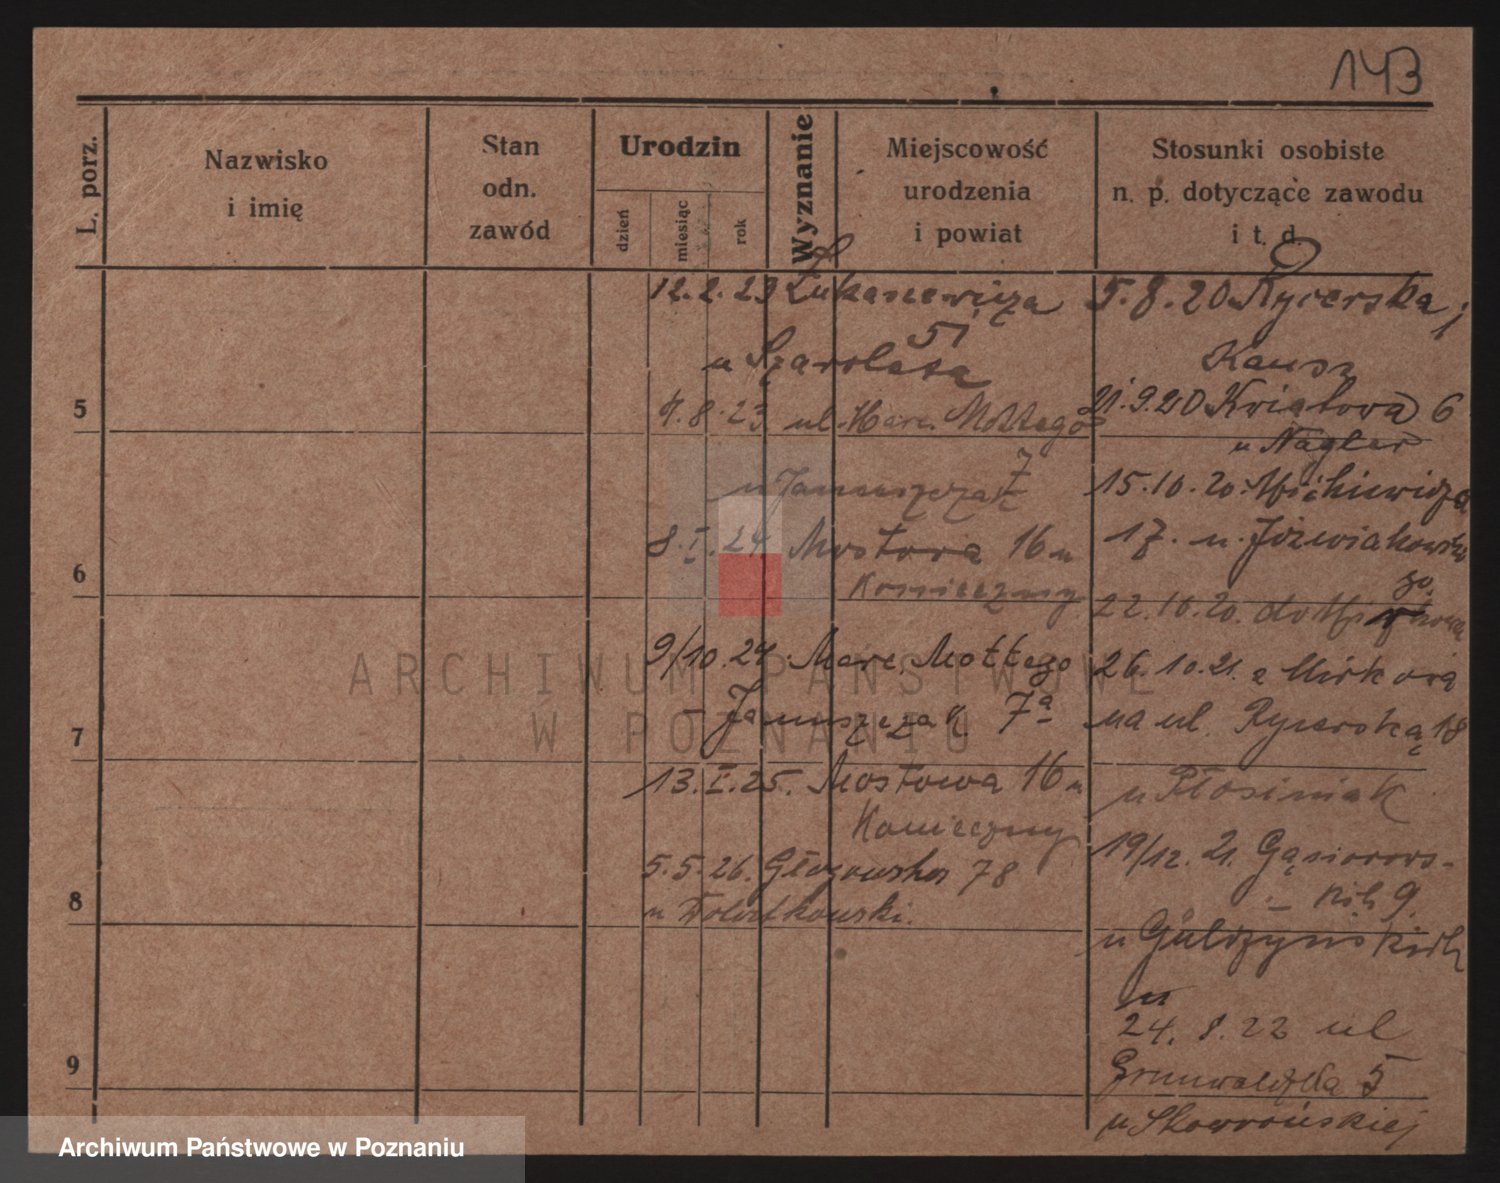 143
L. porz.
Nazwisko
i imię
Stan
odn.
zawód
Urodzin
dzień
miesiąc
rok
Wyznanie
Miejscowość
urodzenia
i powiat
Stosunki osobiste
n. p. dotyczące zawodu
i t. d.
5
6
7
8
9
12.2.23 Łukasiewicza
51
u Szarolata
4.8.23 ul. Marc. Mottego
7
u Januszczak
8.I.24 Mostowa 16 u
Konieczny
9/10.24 Marc. Mottego
- Januszczak 7a
13.I.25. Mostowa 16 u
Konieczny
5.5.26. Głogowska 78
u
5.8.20 Rycerska
Kausz
21.9.20 Kwiatowa 6
u Nagler
15.10.20. Mickiewicza
17. u. Jóźwiakowskie
go.
22.10.20. do
26.10.21. z
na ul. Rycerską 18
u Płosiniak
19/12.21. Gąsiorows-
kich 9.
u Gulczyńskich
u
24.8.22 ul
Grunwaldzka 5
u Skowrońskiej
ARCHIWUM PAŃSTWOWE
W POZNANIU
Archiwum Państwowe w Poznaniu